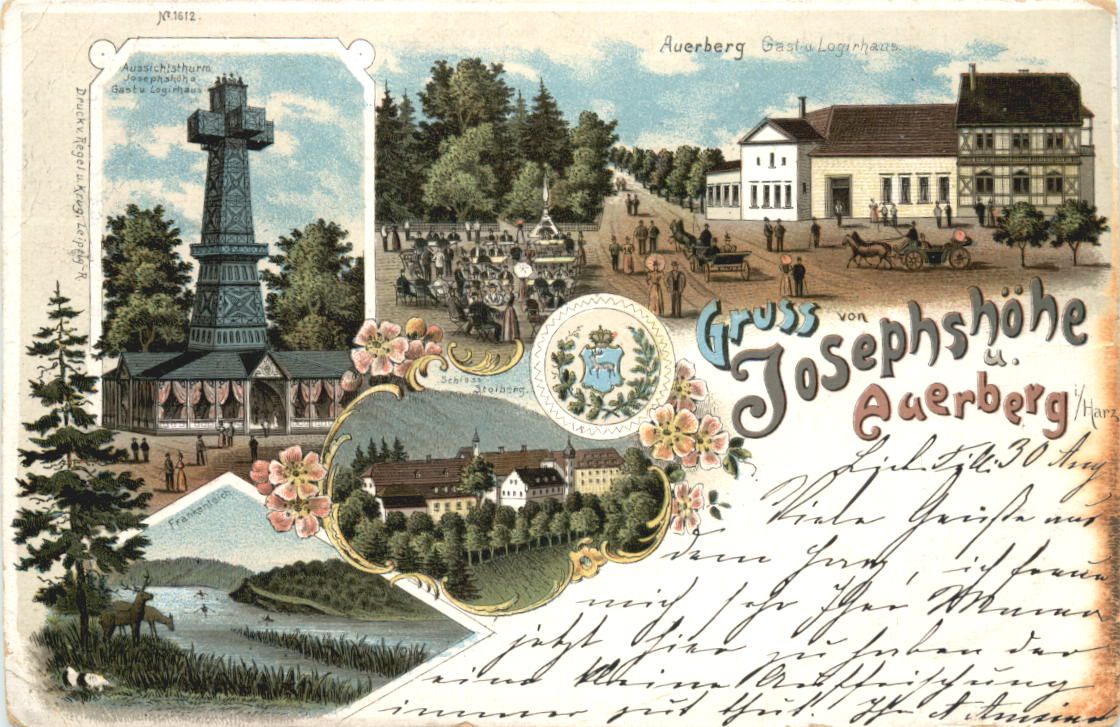 № 1612.
Aussichtsthurm
Josephshöhe
Gast u. Logirhaus
Druck v. Regel u. Krug, Leipzig-R.
Auerberg Gast u. Logirhaus.
Gruss von
Josephshöhe
u.
Auerberg i/Harz
Schloss
Stolberg.
Frankenteich
30 Aug
Viele Grüße aus
dem Harz, ich freue
mich sehr Ihre Mama
jetzt hier zu haben der
eine kleine Auffrischung
immer gut thut.